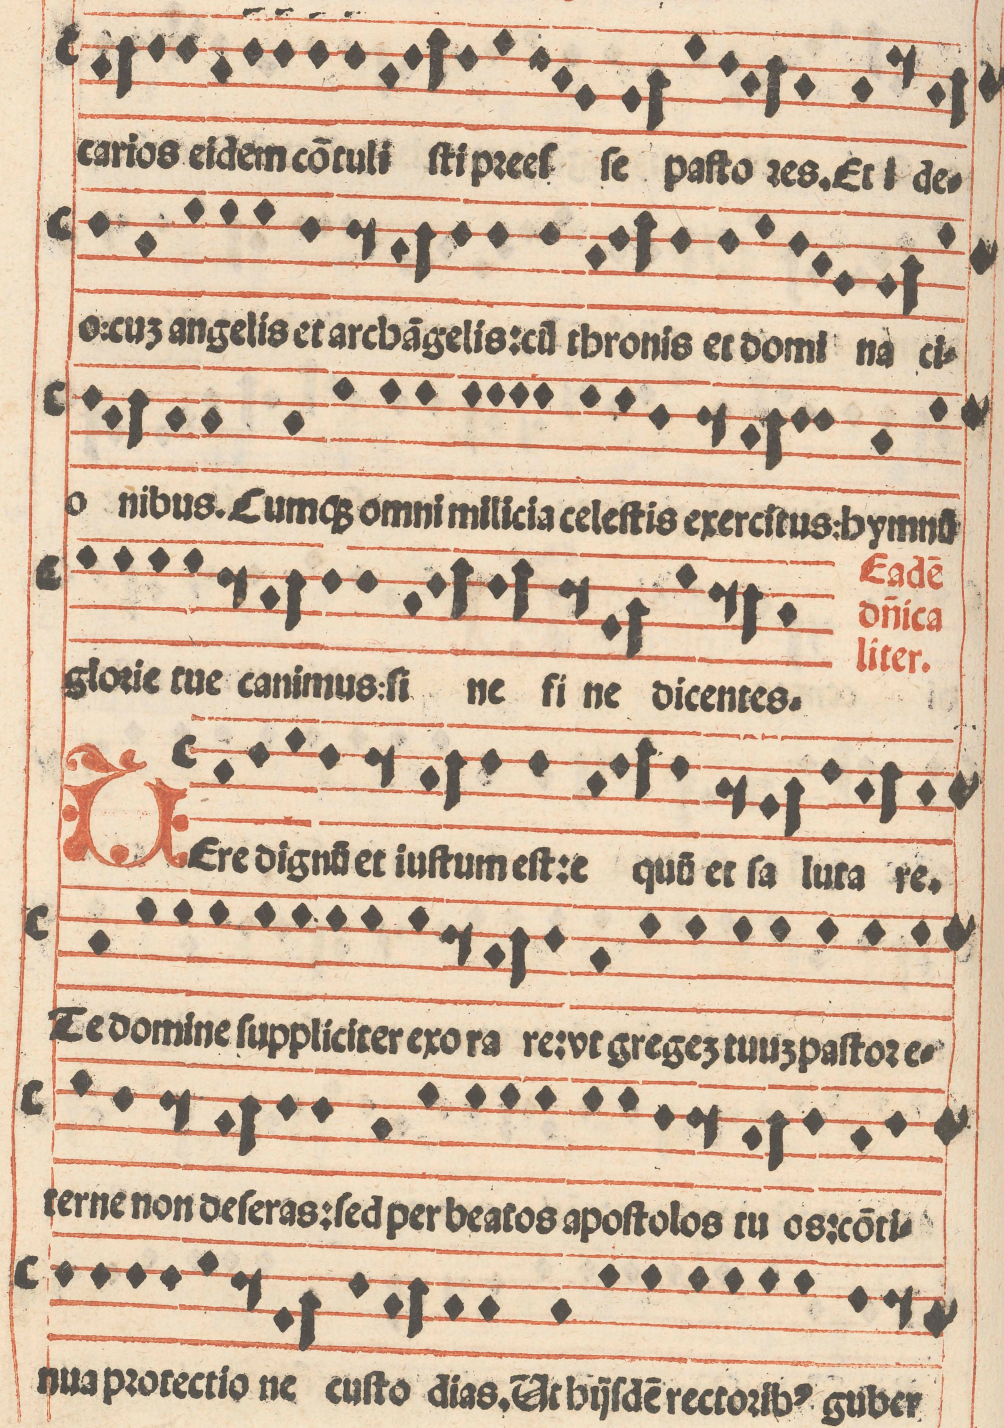 carios eidem cōtuli sti preeſ ſe paſto res. Et i de-
o: cuȝ angelis et archāgelis: cū thronis et domi na ci-
o nibus. Cumqꝫ omni milicia celeſtis exercitus: hymnū
glorie tue canimus: ſi ne fi ne dicentes.
Eadē
dñica
liter.
VEre dignū et iuſtum eſt: e quū et ſa luta re.
Te domine ſuppliciter exo ra re: vt gregeȝ tuuȝ paſtor e-
terne non deſeras: ſed per beatos apoſtolos tu os: cōti-
nua protectio ne cuſto dias. Ut hijſdē rectoribꝰ guber